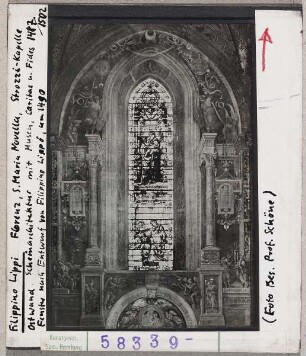 Filippino Lippi Florenz, S. Maria Novella, Strozzi-Kapelle
Ostwand Scheinarchitektur mit Musen, Caritas u. Fides 1487/1502
Fenster nach Entwurf von Filippino Lippi, um 1490
(Foto Bes. Prof. Schöne)
Kunstgesch.
Sem. Hamburg
58339-